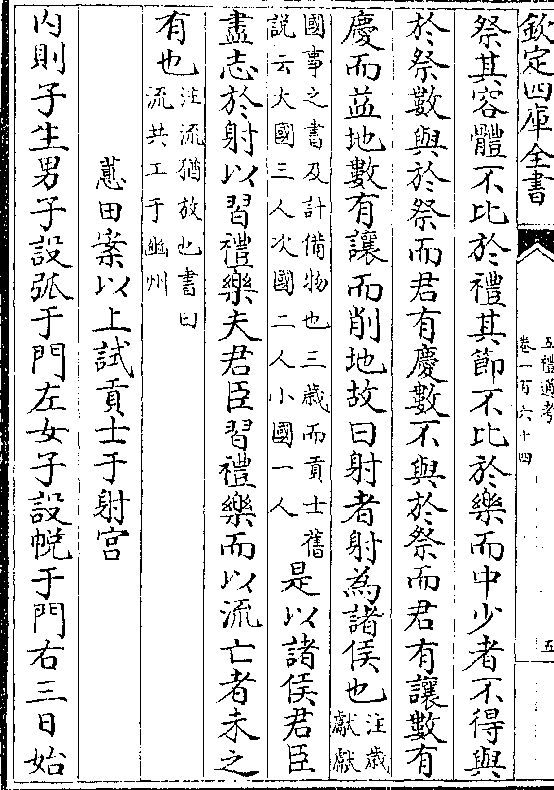 欽定四庫全書
五禮通考
卷一百六十四
五
祭其容體不比於禮其節不比於樂而中少者不得與
於祭數與於祭而君有慶數不與於祭而君有讓數有
慶而益地數有讓而削地故曰射者射為諸侯也注歲
獻獻
國事之書及計偕物也三歲而貢士舊
說云大國三人次國二人小國一人
是以諸侯君臣
盡志於射以習禮樂夫君臣習禮樂而以流亡者未之
有也注流猶放也書曰
流共工于幽州
蕙田案以上試貢士于射宮
内則子生男子設弧于門左女子設帨于門右三日始